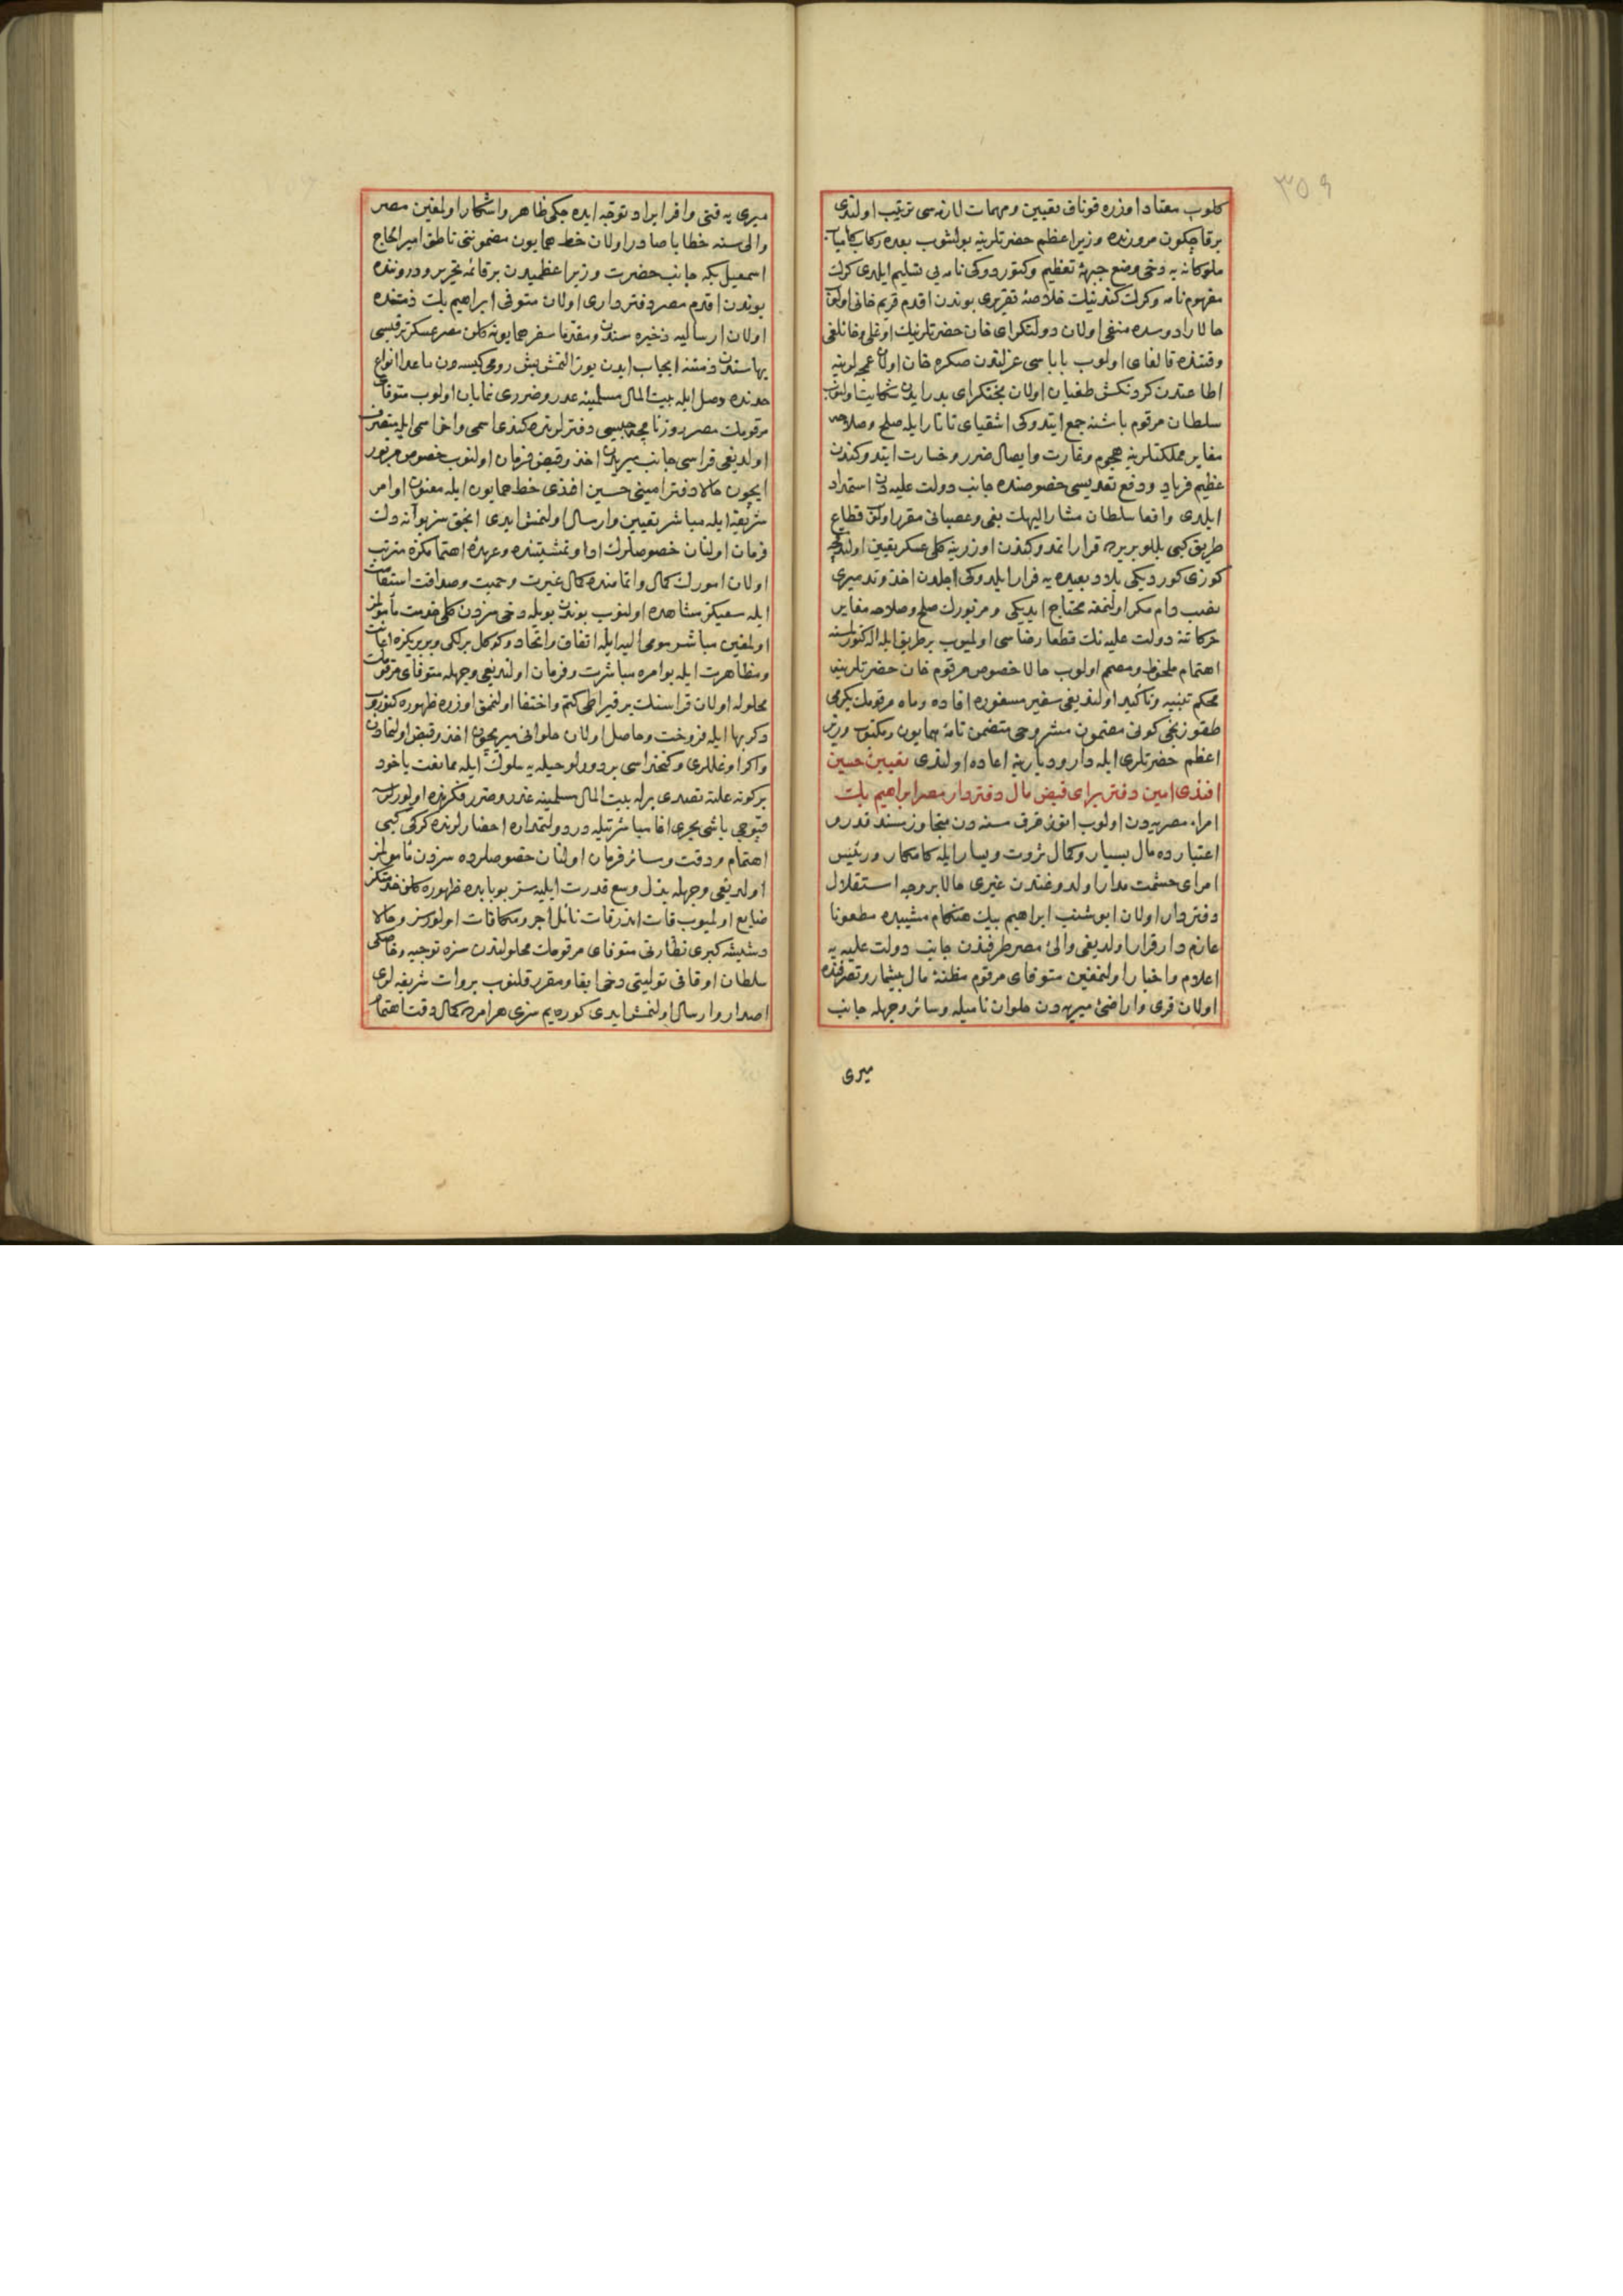 ٣٥٩
كلوب معتاد اوزره قوناق تعيين ومهمات لازمه سى ترتيب اولندى
برقاچكون مرورنده وزير اعظم حضرتلرينه بولشوب بعده ركاب كامياب
ملوكانه يه دخى وضع جبهۀ تعظيم وكتوردوكى نامه يى تسليم ايلدى كرك
مفهوم نامه وكرك كندينك خلاصۀ تقريرى بوندن اقدم قريم خانى اولوب
حالا رادوسده منفى اولان دولتكراى خان حضرتلرينك اوغلى وخانلغى
وقتنده قالغاى اولوب باباسى عزلندن صكره خان اولان عمجه لرينه
اطاعتدن كردنكش طغيان اولان بختكراى بدرايدن شكايت اولنوب
سلطان مرقوم باشنه جمع ايتدوكى اشقياى تاتار ايله صلح وصلاحه
مغاير مملكتلرينه هجوم وغارت وايصال ضرر وخسارت ايتدوكندن
عظيم فرياد ودفع تعديسى خصوصنده جانب دولت عليه دن استمداد
ايلدى واقعا سلطان مشار اليهك بغى وعصيانى مقرر اولان قطاع
طريق كبى بللو يريرده قرار ايتمدوكندن اوزرينه كلى عسكر تعيين اولندقچه
كوزى كورديكى بلاد بعيده يه فرار ايلدوكى اجلدن اخذ وتدميرى
نصب دام مكر اولنمغه محتاج ايديكى ومزبورك صلح وصلاحه مغاير
حركاتنه دولت عليه نك قطعا رضاسى اولميوب برطريق ايله اله كتورلمسنه
اهتمام ملحوظ ومصمم اولوب حالا خصوص مرقوم خان حضرتلرينه
محكم تنبيه وتأكيد اولنديغى سفير مسفوره افاده وماه مرقومك يكرمى
طقوزنجى كونى مضمون مشروحى متضمن نامۀ همايون ومكتوب وزير
اعظم حضرتلرى ايله دار وديارينه اعاده اولندى تعيين حسين
افندى امين دفتر براى قبض مال دفتردار مصر ابراهيم بك
امراء مصريه دن اولوب اوتوز قرق سنه دن متجاوز مسند قدر و
اعتبارده مال بسيار وكمال ثروت ويسار ايله كامكار ورئيس
امراى حشمت مدار اولدوغندن غيرى حالا بروجه استقلال
دفتردار اولان ابو شنب ابراهيم بيك هنكام مشيبده مطعونا
عازم دار قرار اولديغى والئ مصر طرفندن جانب دولت عليه يه
اعلام واخبار اولنمغين متوفاى مرقوم مظنۀ مال بيشمار وتصرفنده
اولان قرى واراضئ ميريه دن حلوان ناميله وسائر وجهله جانب
ميرى
ميرى يه قتى وافر ايراد توجه ايده جكى ظاهر واشكار اولمغين مصر
والى سنه خطابا صادر اولان خط همايون مضمونى ناطق امير الحاج
اسمعيل بكه جانب حضرت وزير اعظميدن برقائمه تحرير ودروننده
بوندن اقدم مصر دفتردارى اولان متوفى ابراهيم بك ذمتنده
اولان ارساليه ذخيره سندن ومقدما سفر همايونه كلن مصر عسكر ترقيسى
بهاسندن ذمتنه ايجاب ايدن يوز التمش بش رومى كيسه دن ماعدا انواع
حدنده وصل ايله بيت المال مسلمينه غدر وضررى نمايان اولوب متوفاى
مرقومك مصر روزنامچه جيسى دفترلرنده كندى اسمى واخر اسمى ايله متصرف
اولديغى قراسى جانب ميريدن اخذ وقبض فرمان اولنوب خصوص مزبور
ايچون حالا دفتر امينى حسين افندى خط همايون ايله معنون اوامر
شريفه ايله مباشر تعيين وارسال اولنمش ايدى انجق سز بو آنه دك
فرمان اولنان خصوصلرك ادا وتمشيتنده وعهدۀ اهتمامكزه مترتب
اولان امورك كمال واتمامنده كمال غيرت وحميت وصداقت استقامت
ايله سعيكز مشاهده اولنوب بوندن بويله دخى سزدن كلى خدمت مأمولمز
اولمغين مباشر مومى اليه ايله اتفاق واتحاد وكوكل برلكى وبربريكزه اعانت
ومظاهرت ايله بو امره مباشرت وفرمان اولنديغى وجهله متوفاى مرقومك
محلوله اولان قراسنك بر قيراطى كتم واختفا اولنمق اوزره ظهوره كتوروب
دكر بها ايله فروخت وحاصل اولان حلوانى ميريچون اخذ وقبض اولنمادن
واكر اوغللرى وكتخداسى بر دورلو حيله يه سلوك ايله ممانعت ياخود
بركونه علته تصدى برله بيت المال مسلمينه غدر وضرر فكرنده اولورلرسه
قپوجى باشى يحرى اغا مباشرتيله در دولتمداره احضارلرنده كركى كبى
اهتمام ودقت وسائر فرمان اولنان خصوصلرده سزدن مأمولمز
اولديغى وجهله بذل وسع قدرت ايليه سز بو بابده ظهوره كلن خدمتكز
ضايع اولميوب قات اندر قات نائل اجر ومكافات اولورسز وحالا
دشيشه كبرى نظارتى متوفاى مرقومك محلولندن سزه توجيه وخاصكى
سلطان اوقافى توليتى دخى ابقا ومقرر قلنوب بروات شريفه لرى
اصدار وارسال اولنمش ايدى كوره يم سزى هر امرده كمال دقت اهتمام